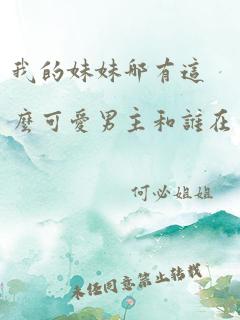 我的妹妹哪有這
麼可愛男主和誰在
何必姐姐
未经同意禁止转载